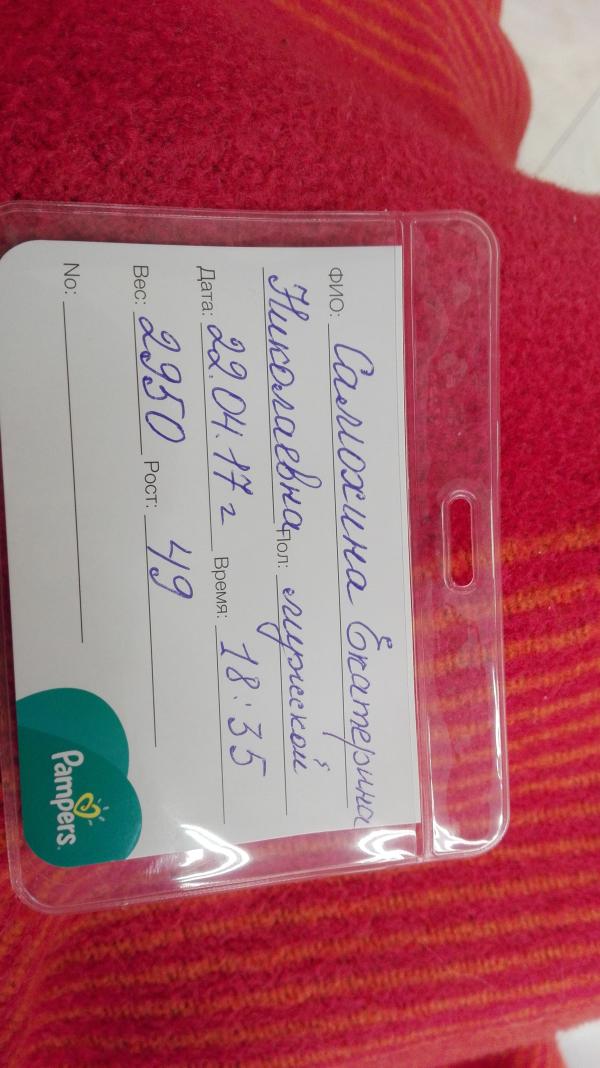 ФИО: Самохина Екатерина
Николаевна Пол: мужской
Дата: 22.04.17г Время: 18:35
Вес: 2950 Рост: 49
No:
Pampers.